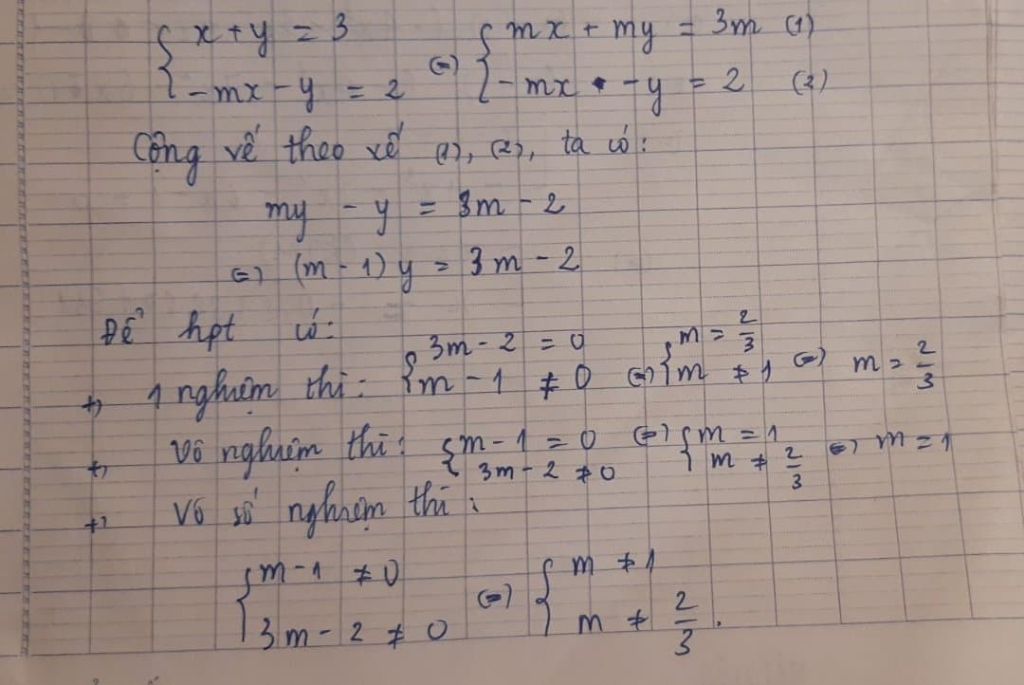 { x + y = 3 (=) { mx + my = 3m (1)
{ -mx - y = 2 { -mx - y = 2 (2)
Cộng vế theo vế (1), (2), ta có:
my - y = 3m - 2
(=) (m - 1) y = 3m - 2
Để hpt có:
+) 1 nghiệm thì: { 3m - 2 = 0 , m - 1 ≠ 0 (=) { m = 2/3 , m ≠ 1 (=) m = 2/3
+) Vô nghiệm thì: { m - 1 = 0 , 3m - 2 ≠ 0 (=) { m = 1 , m ≠ 2/3 (=) m = 1
+) Vô số nghiệm thì:
{ m - 1 ≠ 0 (=) { m ≠ 1
{ 3m - 2 ≠ 0 { m ≠ 2/3.